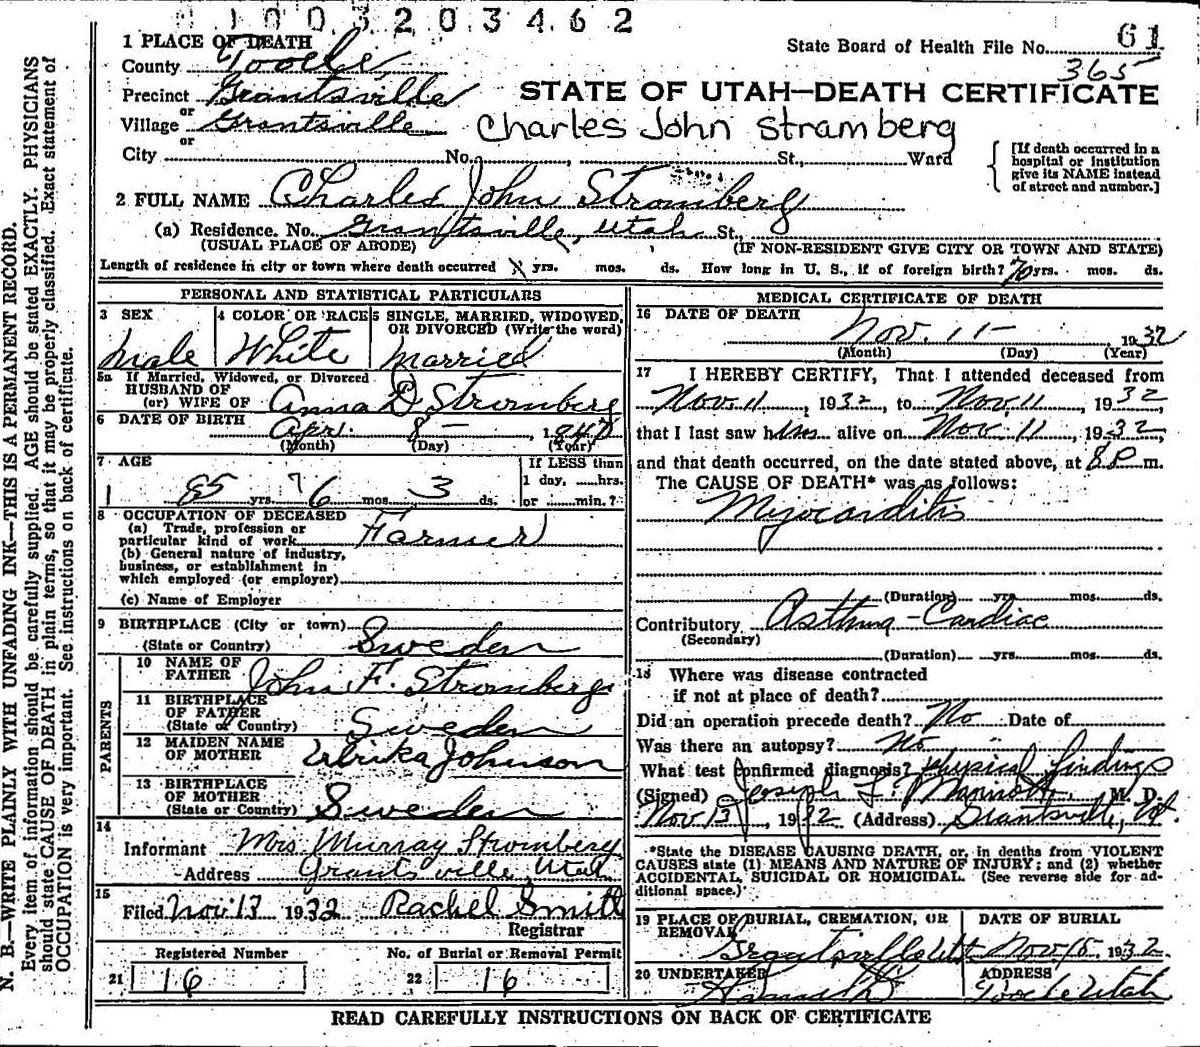 1003203462
1 PLACE OF DEATH
State Board of Health File No. 61
County Tooele
365
Precinct Grantsville
STATE OF UTAH—DEATH CERTIFICATE
or
Village Grantsville
Charles John Stramberg
or
City No. , St., Ward
[If death occurred in a hospital or institution give its NAME instead of street and number.]
2 FULL NAME Charles John Stromberg
(a) Residence. No. Grantsville, Utah St.,
(USUAL PLACE OF ABODE) (IF NON-RESIDENT GIVE CITY OR TOWN AND STATE)
Length of residence in city or town where death occurred yrs. mos. ds. How long in U. S., if of foreign birth? 70 yrs. mos. ds.
PERSONAL AND STATISTICAL PARTICULARS
3 SEX 4 COLOR OR RACE 5 SINGLE, MARRIED, WIDOWED,
OR DIVORCED (Write the word)
Male White Married
5a If Married, Widowed, or Divorced
HUSBAND OF
(or) WIFE OF Anna D Stromberg
6 DATE OF BIRTH Apr. 8 -, 184
(Month) (Day) (Year)
7 AGE If LESS than
1 day, hrs.
85 yrs. 6 mos. 3 ds. or min.?
8 OCCUPATION OF DECEASED
(a) Trade, profession or
particular kind of work Farmer
(b) General nature of industry,
business, or establishment in
which employed (or employer)
(c) Name of Employer
9 BIRTHPLACE (City or town)
(State or Country) Sweden
PARENTS
10 NAME OF
FATHER John F. Stromberg
11 BIRTHPLACE
OF FATHER
(State or Country) Sweden
12 MAIDEN NAME
OF MOTHER Ulrika Johnson
13 BIRTHPLACE
OF MOTHER
(State or Country) Sweden
14
Informant Mrs Murray Stromberg
Address Grantsville, Utah
15
Filed Nov 13 1932 Rachel Smith
Registrar
Registered Number No. of Burial or Removal Permit
21 16 22 16
MEDICAL CERTIFICATE OF DEATH
16 DATE OF DEATH
Nov. 11 - 1932
(Month) (Day) (Year)
17 I HEREBY CERTIFY, That I attended deceased from
Nov. 11, 1932, to Nov. 11, 1932,
that I last saw him alive on Nov. 11, 1932
and that death occurred, on the date stated above, at 8 P m.
The CAUSE OF DEATH* was as follows:
Myocarditis
(Duration) yrs. mos. ds.
Contributory Asthma - Cardiac
(Secondary)
(Duration) yrs. mos. ds.
18 Where was disease contracted
if not at place of death?
Did an operation precede death? No Date of
Was there an autopsy? No "
What test confirmed diagnosis? Physical findings
(Signed) Joseph L. M. D.
Nov 13, 1932 (Address) Grantsville, Ut.
*State the DISEASE CAUSING DEATH, or, in deaths from VIOLENT
CAUSES state (1) MEANS AND NATURE OF INJURY; and (2) whether
ACCIDENTAL, SUICIDAL OR HOMICIDAL. (See reverse side for ad-
ditional space.)
19 PLACE OF BURIAL, CREMATION, OR DATE OF BURIAL
REMOVAL
Grantsville Ut Nov 15 1932
20 UNDERTAKER ADDRESS
Tooele Utah
READ CAREFULLY INSTRUCTIONS ON BACK OF CERTIFICATE
N. B.—WRITE PLAINLY WITH UNFADING INK—THIS IS A PERMANENT RECORD.
Every item of information should be carefully supplied. AGE should be stated EXACTLY. PHYSICIANS
should state CAUSE OF DEATH in plain terms, so that it may be properly classified. Exact statement of
OCCUPATION is very important. See instructions on back of certificate.